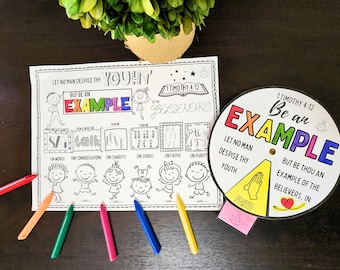 LET NO MAN DESPISE THY
YOUTH
BUT BE AN
EXAMPLE
OF THE
BELIEVERS
1 TIMOTHY 4:12
IN WORD
IN CONVERSATION
IN CHARITY
IN SPIRIT
IN FAITH
IN PURITY
1 TIMOTHY 4:12
Be an
EXAMPLE
LET NO MAN
DESPISE THY
YOUTH
BUT BE THOU
AN EXAMPLE
OF THE
BELIEVERS, IN